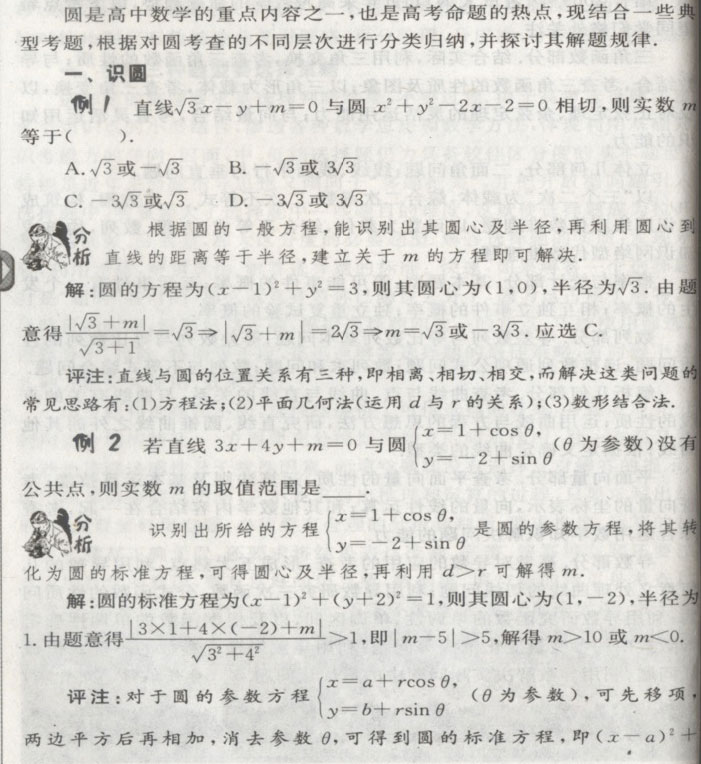 圆是高中数学的重点内容之一,也是高考命题的热点,现结合一些典
型考题,根据对圆考查的不同层次进行分类归纳,并探讨其解题规律.
一、识圆
例1 直线√3x-y+m=0 与圆 x²+y²-2x-2=0 相切,则实数 m
等于( ).
A. √3或-√3 B. -√3或 3√3
C. -3√3或√3 D. -3√3或 3√3
分析 根据圆的一般方程,能识别出其圆心及半径,再利用圆心到
直线的距离等于半径,建立关于 m 的方程即可解决.
解:圆的方程为(x-1)²+y²=3,则其圆心为(1,0),半径为√3. 由题
意得|√3+m|/√(3+1)=√3⇒|√3+m|=2√3⇒m=√3或-3√3. 应选 C.
评注:直线与圆的位置关系有三种,即相离、相切、相交,而解决这类问题的
常见思路有:(1)方程法;(2)平面几何法(运用 d 与 r 的关系);(3)数形结合法.
例2 若直线 3x+4y+m=0 与圆{x=1+cos θ, y=-2+sin θ(θ 为参数)没有
公共点,则实数 m 的取值范围是____.
分析 识别出所给的方程{x=1+cos θ, y=-2+sin θ 是圆的参数方程,将其转
化为圆的标准方程,可得圆心及半径;再利用 d>r 可解得 m.
解:圆的标准方程为(x-1)²+(y+2)²=1,则其圆心为(1,-2),半径为
1. 由题意得|3×1+4×(-2)+m|/√(3²+4²)>1,即|m-5|>5,解得 m>10 或 m<0.
评注:对于圆的参数方程{x=a+rcos θ, y=b+rsin θ (θ 为参数),可先移项,
两边平方后再相加,消去参数 θ,可得到圆的标准方程,即(x-a)²+